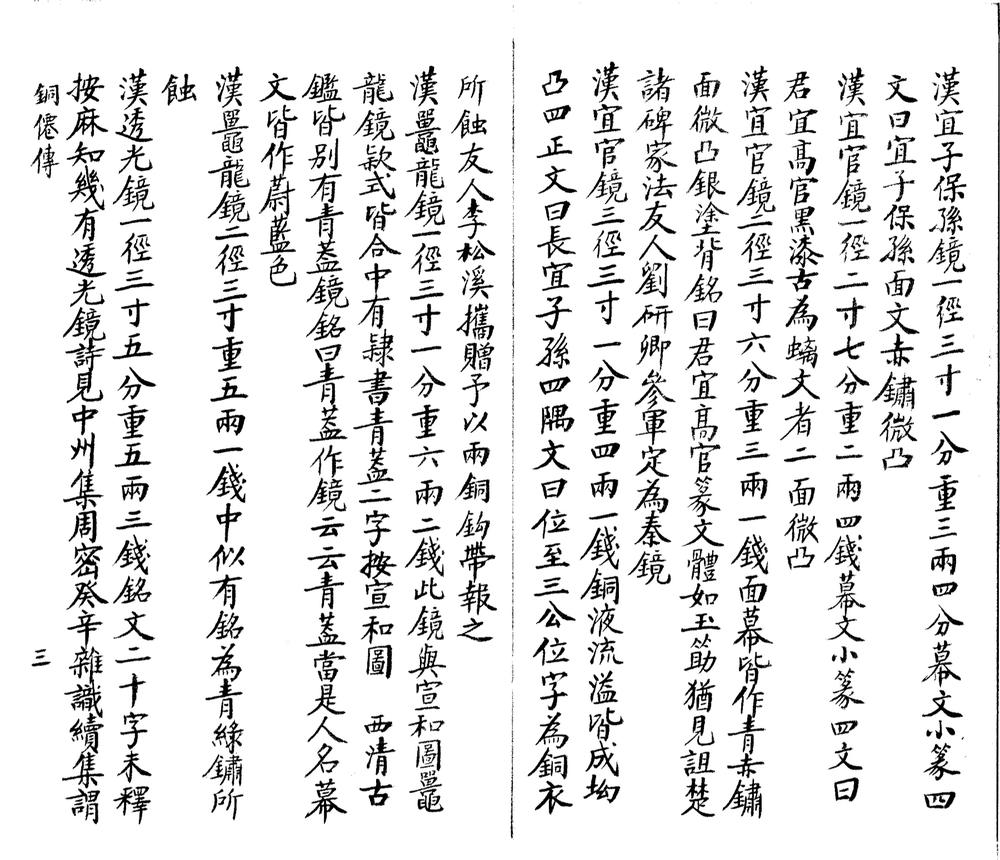 漢宜子保孫鏡一徑三寸一分重三兩四分幕文小篆四
文曰宜子保孫面文赤鏽微凸
漢宜官鏡一徑二寸七分重二兩四錢幕文小篆四文曰
君宜高官黑漆古為螭文者二面微凸
漢宜官鏡二徑三寸六分重三兩一錢面幕皆作青赤鏽
面微凸銀塗背銘曰君宜高官篆文體如玉筯猶見詛楚
諸碑家法友人劉研卿參軍定為秦鏡
漢宜官鏡三徑三寸一分重四兩一錢銅液流溢皆成坳
凸四正文曰長宜子孫四隅文曰位至三公位字為銅衣
所蝕友人李松溪攜贈予以兩銅鈎帶報之
漢鼉龍鏡一徑三寸一分重六兩二錢此鏡與宣和圖鼉
龍鏡款式皆合中有隸書青葢二字按宣和圖 西清古
鑑皆別有青葢鏡銘曰青葢作鏡云云青葢當是人名幕
文皆作蔚藍色
漢鼉龍鏡二徑三寸重五兩一錢中似有銘為青綠鏽所
蝕
漢透光鏡一徑三寸五分重五兩三錢銘文二十字未釋
按麻知幾有透光鏡詩見中州集周密癸辛雜識續集謂
銅僊傳
三